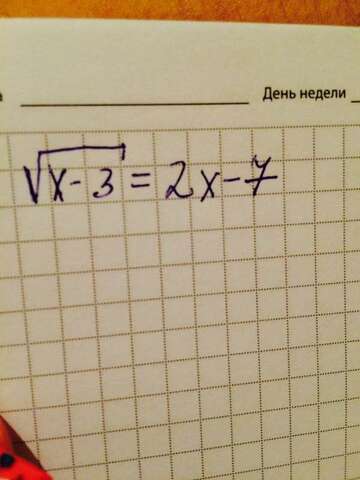 День недели
√(x-3) = 2x-7